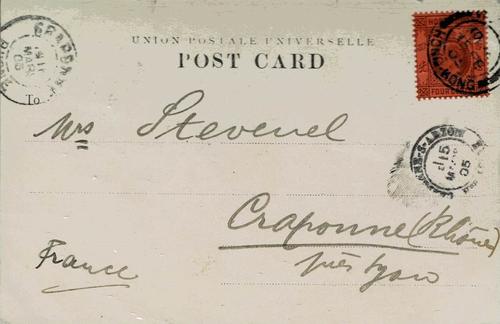 UNION POSTALE UNIVERSELLE
POST CARD
To
Mrs Stevenel
Craponne (Rhône)
près Lyon
France
HONG KONG
FOUR
15
MAR
05